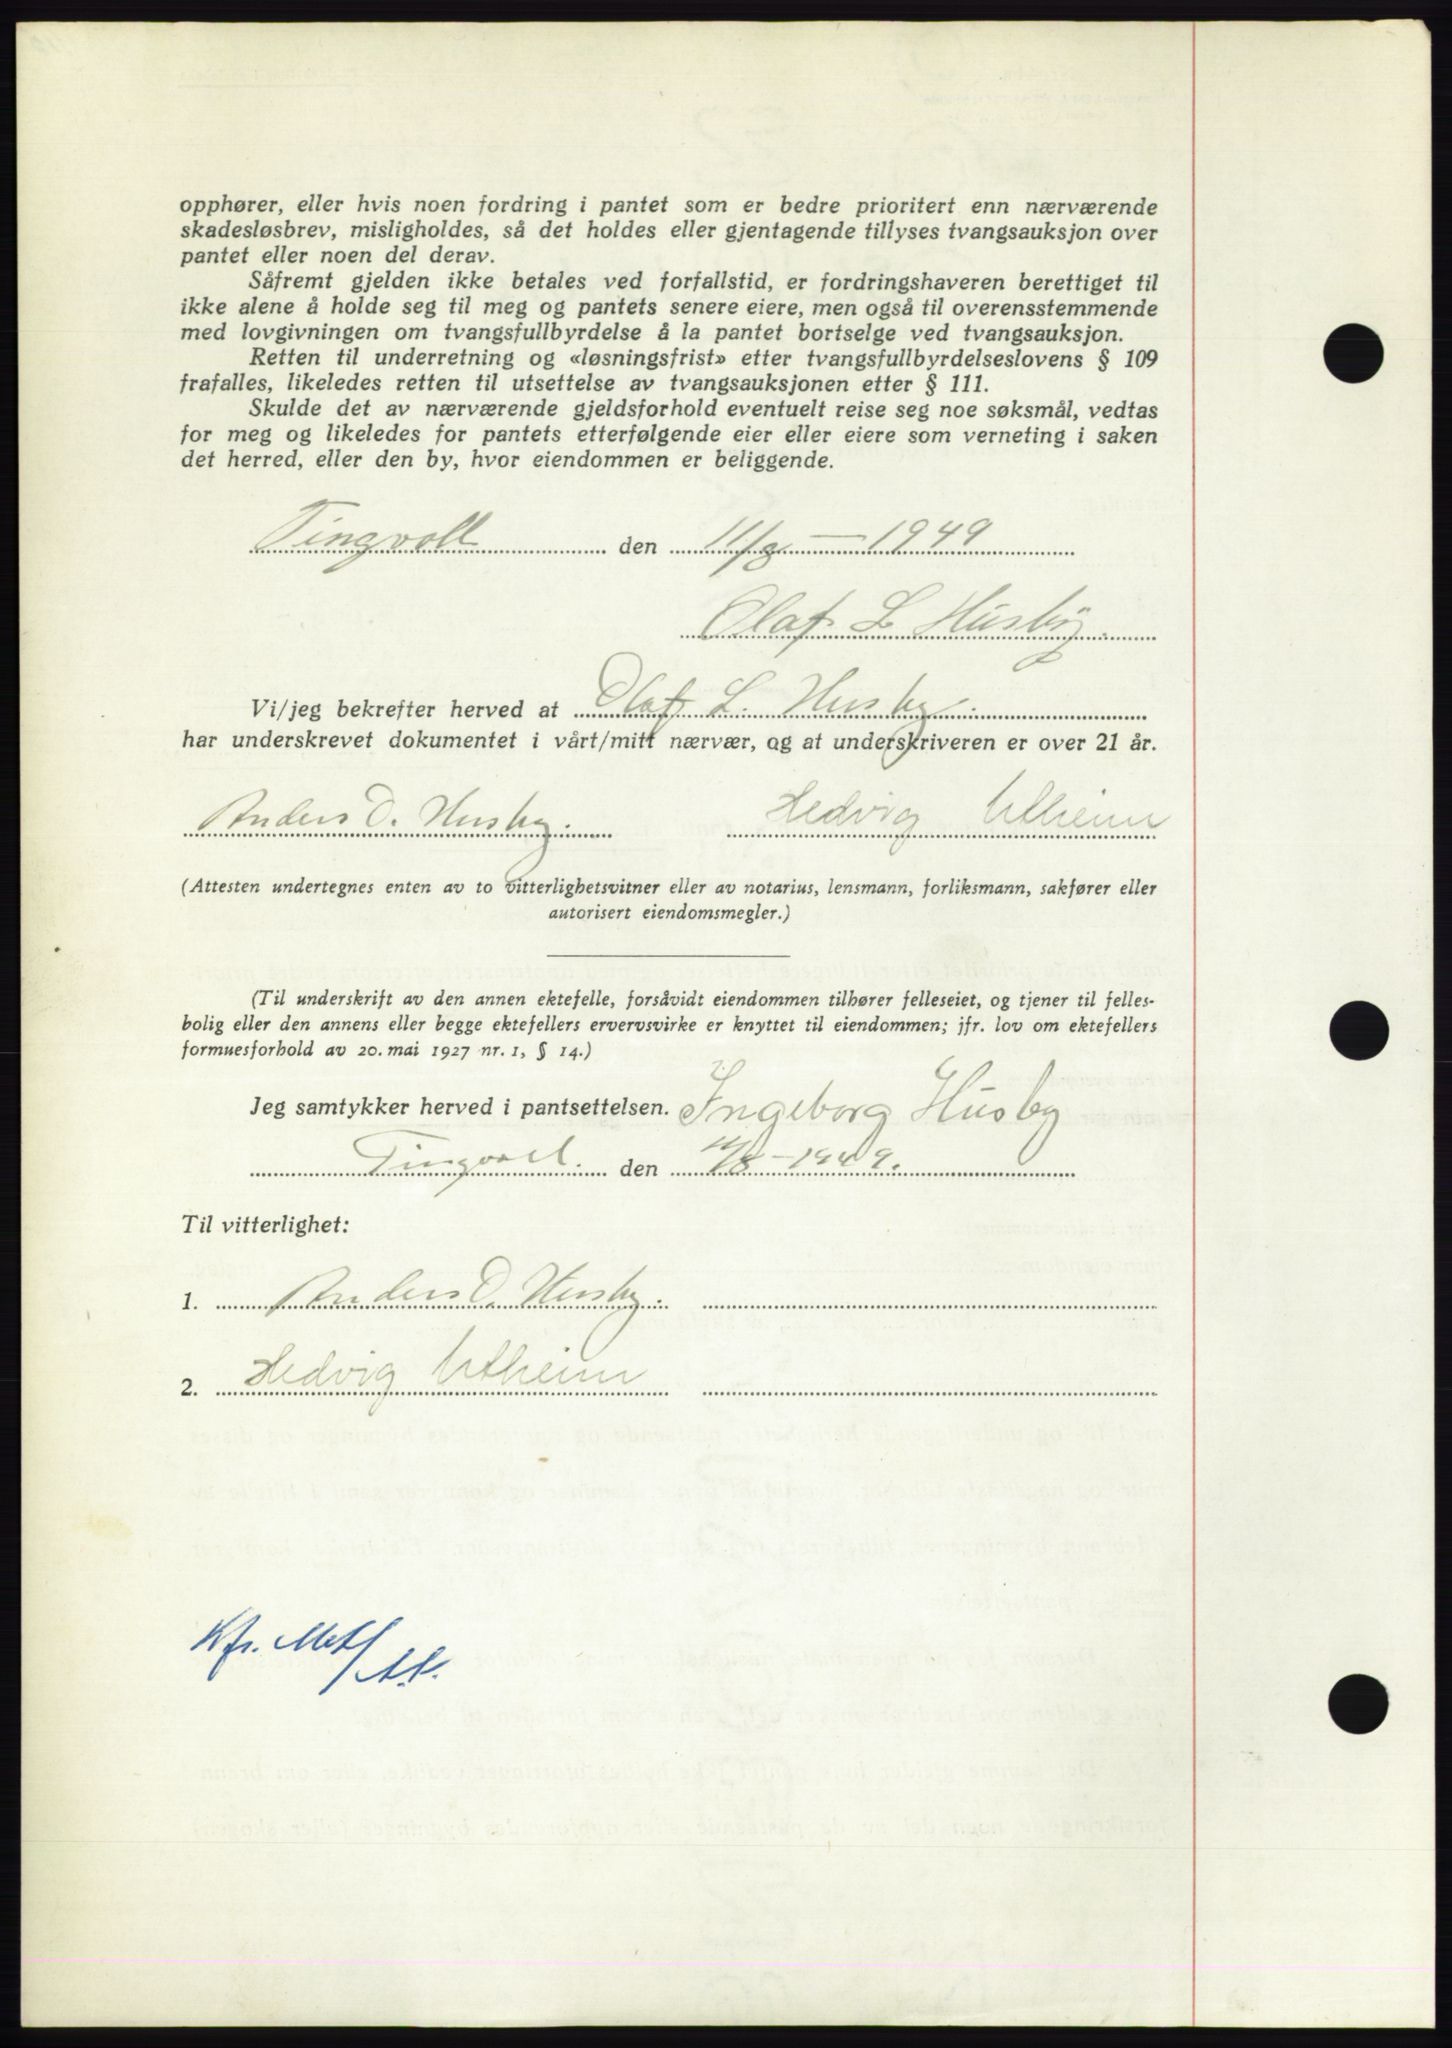 opphører, eller hvis noen fordring i pantet som er bedre prioritert enn nærværende
skadesløsbrev, misligholdes, så det holdes eller gjentagende tillyses tvangsauksjon over
pantet eller noen del derav.
Såfremt gjelden ikke betales ved forfallstid, er fordringshaveren berettiget til
ikke alene å holde seg til meg og pantets senere eiere, men også til overensstemmende
med lovgivningen om tvangsfullbyrdelse å la pantet bortselge ved tvangsauksjon.
Retten til underretning og «løsningsfrist» etter tvangsfullbyrdelseslovens § 109
frafalles, likeledes retten til utsettelse av tvangsauksjonen etter § 111.
Skulde det av nærværende gjeldsforhold eventuelt reise seg noe søksmål, vedtas
for meg og likeledes for pantets etterfølgende eier eller eiere som verneting i saken
det herred, eller den by, hvor eiendommen er beliggende.
Tingvoll den 11/8 - 1949
Olaf L Husby
Vi/jeg bekrefter herved at Olaf L. Husby.
har underskrevet dokumentet i vårt/mitt nærvær, og at underskriveren er over 21 år.
Anders O. Husby. Hedvig Utheim
(Attesten undertegnes enten av to vitterlighetsvitner eller av notarius, lensmann, forliksmann, sakfører eller
autorisert eiendomsmegler.)
(Til underskrift av den annen ektefelle, forsåvidt eiendommen tilhører felleseiet, og tjener til felles-
bolig eller den annens eller begge ektefellers ervervsvirke er knyttet til eiendommen; jfr. lov om ektefellers
formuesforhold av 20. mai 1927 nr. 1, § 14.)
Jeg samtykker herved i pantsettelsen. Ingeborg Husby
Tingvoll. den 11/8 - 1949.
Til vitterlighet:
1. Anders O. Husby.
2. Hedvig Utheim
Kfr.